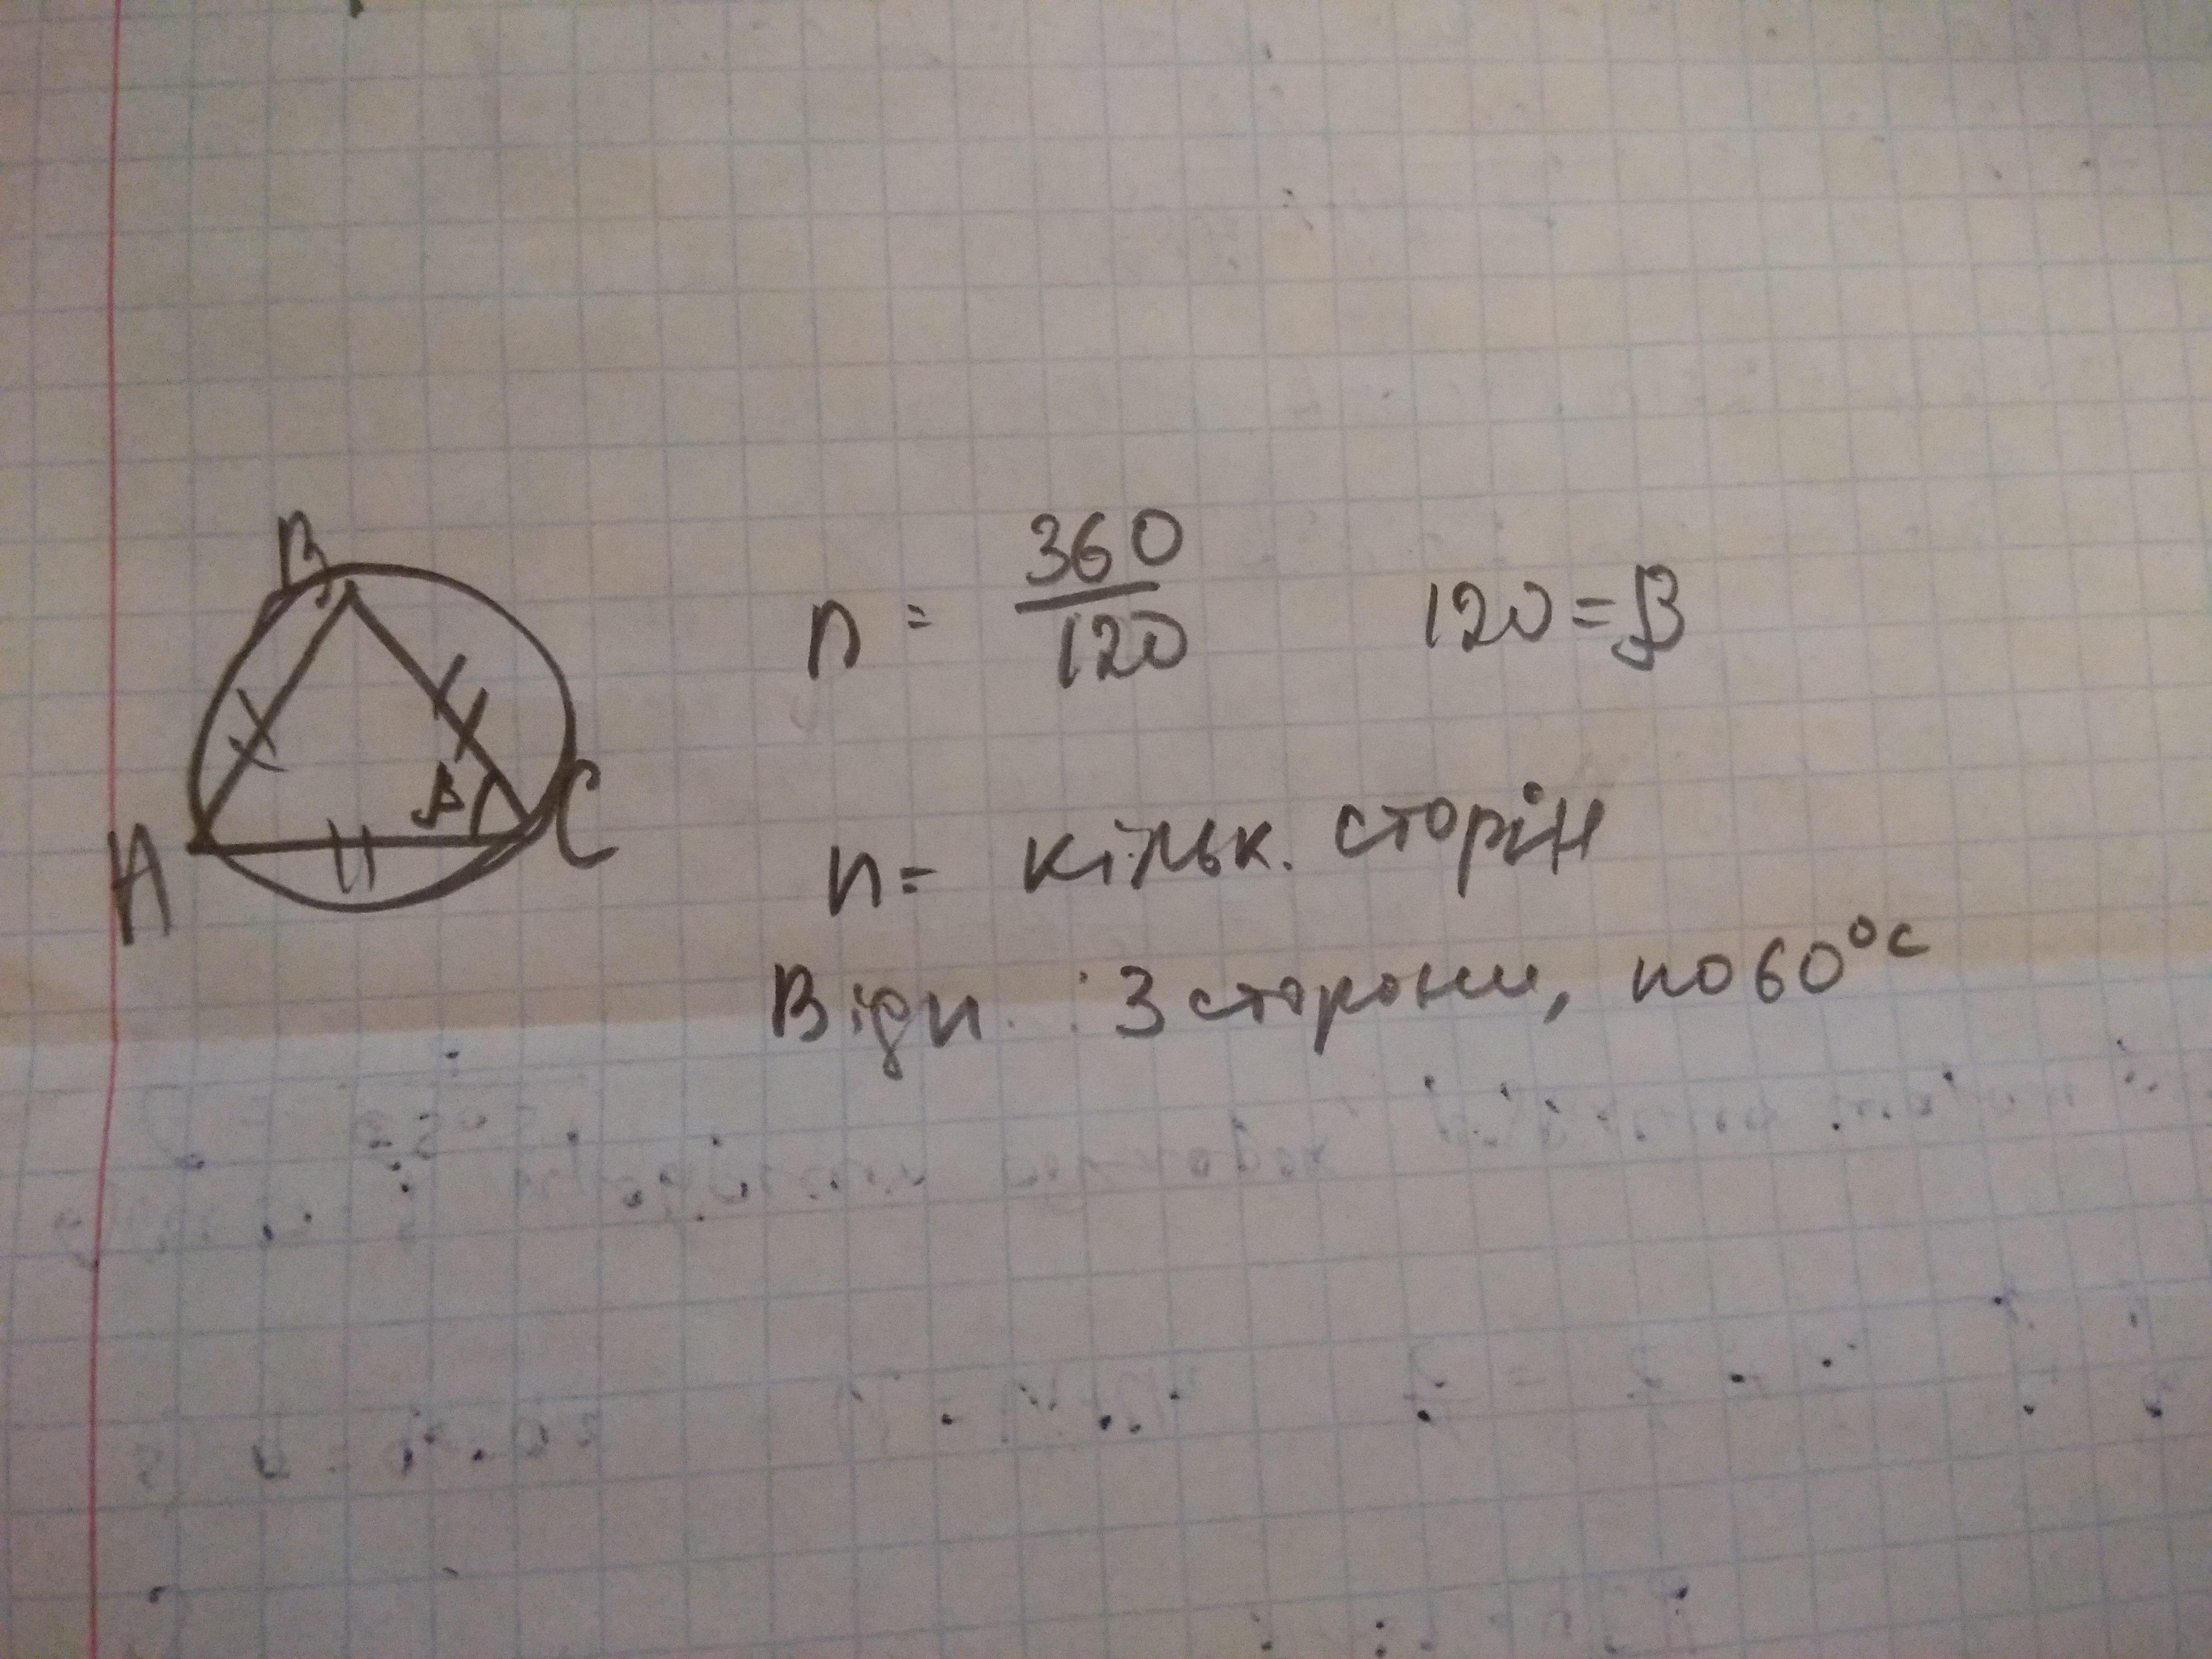 B
A
C
β
n = 360/120 120 = β
n = кільк. сторін
Відп. : 3 сторони, по 60°С